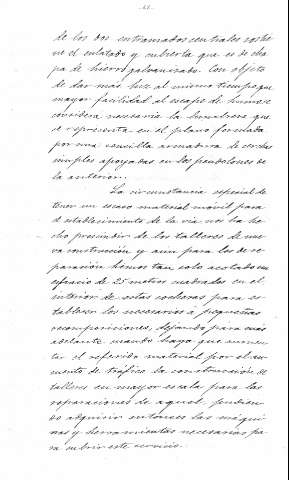 de los dos entramados centrales sostie
ne el enlatado y cubierta que es de cha
pa de hierro galvanizado. Con objeto
de dar mas luz al mismo tiempo que
mayor facilidad al escape de humos se
considera necesaria la lumbrera que
se representa en el plano formada
por una sencilla armadura de cerchas
simples apoyadas en los pendolones de
la anterior.
La circunstancia especial de
tener un escaso material móvil para
el establecimiento de la via nos ha he
cho prescindir de los talleres de nue
va construcción y aun para los de re
paración hemos tan solo acotado un
espacio de 25 metros cuadrados en el
interior de estas cocheras para es
tablecer los necesarios á pequeñas
recomposiciones, dejando para mas
adelante, cuando haya que aumen
tar el referido material por el au
mento de tráfico la construcción de
talleres en mayor escala para las
reparaciones de aquel, pudien
do adquirir entonces las máqui
nas y herramientas necesarias pa
ra cubrir este servicio.